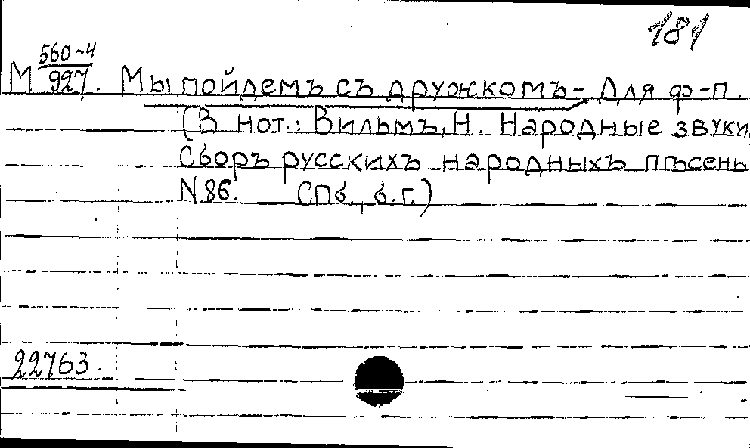 181
М 560-4/927. Мы пойдемъ съ дружкомъ- Для ф-п.
(В нот.: Вильмъ, Н. Народные звуки,
Сборъ русскихъ народныхъ пѣсень
N.86. СПб., б.г.)
22763.